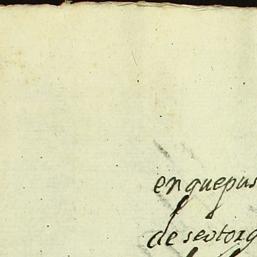 en que pus
de se otorg